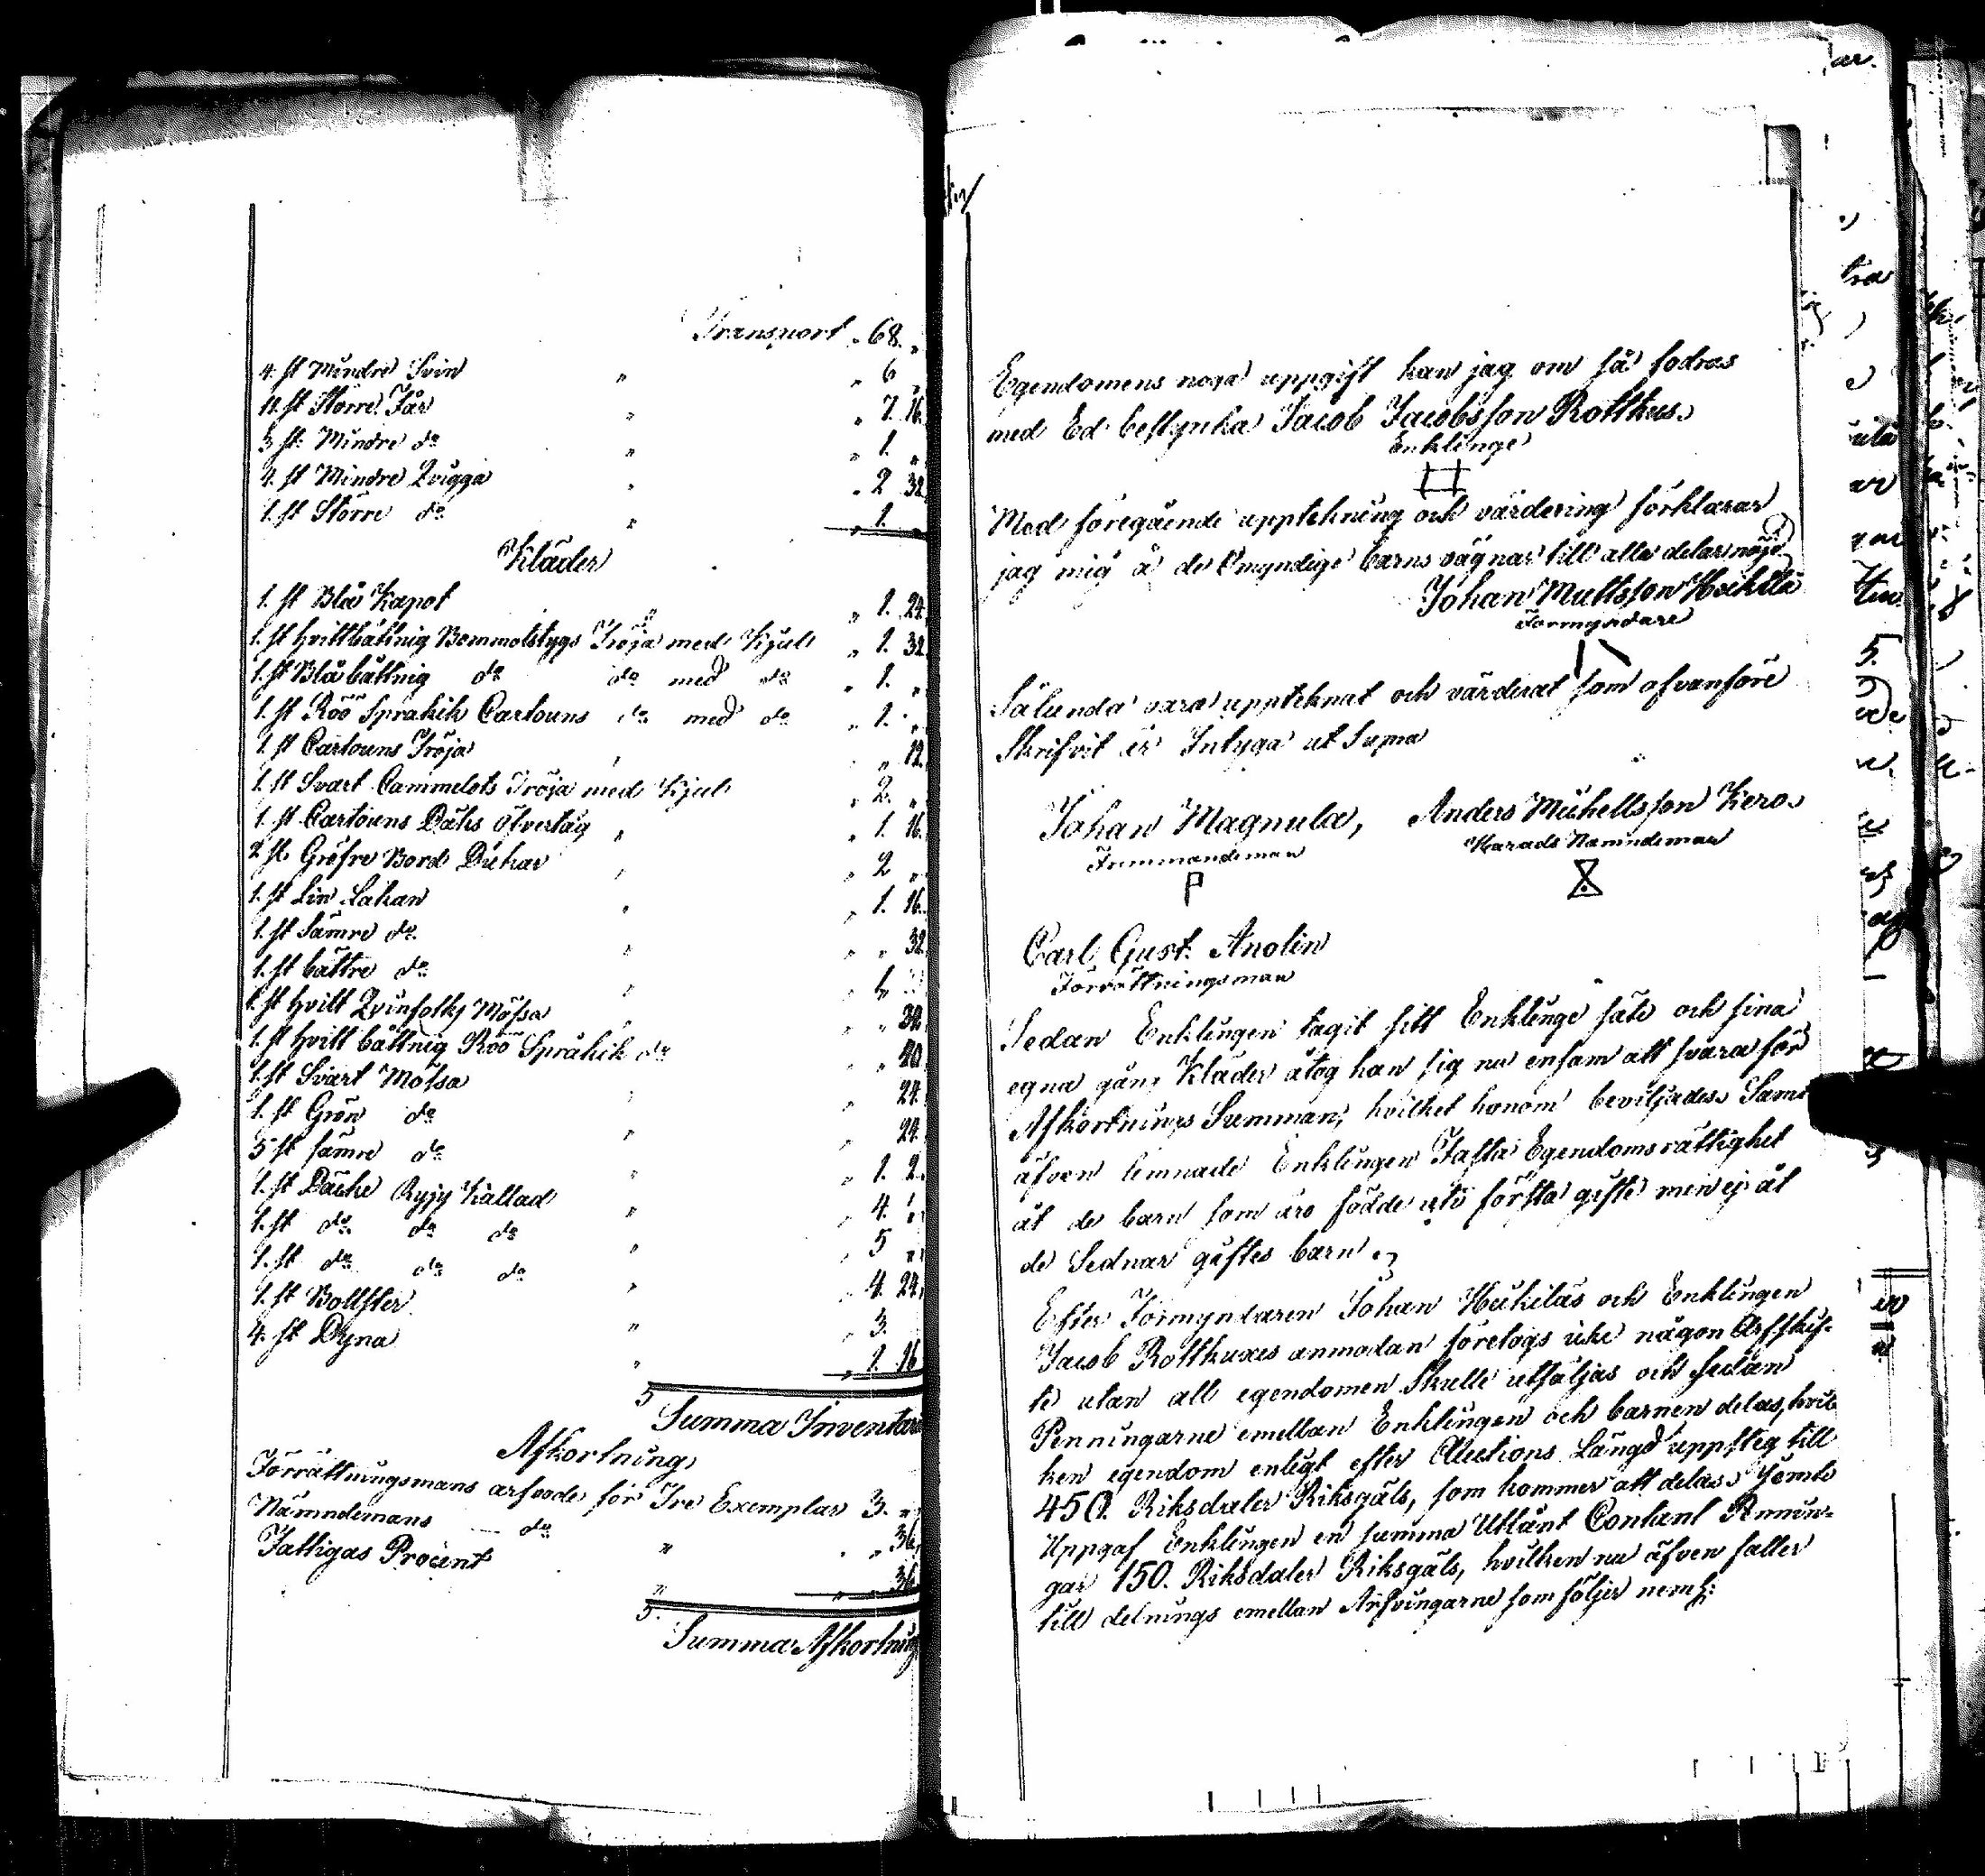 Transport „ 68. „
4. st Mindre Svin „ „ 6 „
11. st Större Får „ „ 7. 16.
3 st. Mindre do „ „ 1. „
4. st Mindre Qvigga „ „ 2 32
1. st Större do „ „ 1. „
Kläder
1. st Blå Kapot „ 1. 24
1. st hvittbåttnig Bommolstygs Tröja med Kjul „ 1. 32
1. st Blåbåttnig do do med do „ 1. „
1. st Röö Sprakik Cartouns do med do „ 1. „
1 st Cartouns Tröja „ „ 12.
1. st Svart Cammelots Tröja med Kjul „ 2. „
1. st Cartouns Däks öfvertåg „ „ 1. 16.
2 st. Gröfre Bord Dukar „ „ 2 „
1. st Lin Lakan „ „ 1. 16.
1. st Sämre do „ „ „ 32
1. st båttre do „
1. st hvitt Qvinfolks Mössa „ „ „ 32
1. st hvitt båttnig Röö Språkik do „ „ 20
1. st Svart Mössa „ „ 24.
1. st Grön do „ „ 24.
3 st sämre do „ „ 1. 2.
1. st Däcke Ryjy Kallad „ „ 4. „
1. st do do do „ „ 5 „
1. st do do do „ „ 4. 24,
1. st Bollster „ „ 3.
4. st Dyna „ „ 1. 16
Summa Inventari
Afkortning
Förrättningsmans arfvode för Tre Exemplar 3. „
Nämndemans do „ „ „ 36,
Fattigas Procent „ „ „ 36
Summa Afkortning
Egendomens noga uppgift kan jag om så fodras
med Ed bestyrka Jacob Jacobsson Rotthus
Enklinge
Med föregående upptekning och värdering förklarar
jag mig å de Omyndige barns vägnar till alla delar nöjd
Johan Mattsson Heikila
Förmyndare
Sålunda vara uppteknat och värderat som ofvanföre
Skrifvit är Intyga ut Supra
Johan Magnula, Anders Mickellsson Kero
Nämndeman Härads Nämndeman
Carl Gust. Anolin
Förrättningsman
Sedan Enklingen tagit sitt Enklinge säte och sina
egna gång Kläder åtog han sig nu ensam att svara för
Afkortnings Summan, hvilket honom beviljades. Samt
äfven lemnade Enklingen Fasta Egendomsrättighet
åt de barn som äro födde uti första gifte men ej åt
de Sednar giftes barn.
Efter Förmyndaren Johan Heikilas och Enklingen
Jacob Rotthuses anmodan företogs icke någon Arfskif-
te utan all egendomen Skulle utsäljas och sedan
Penningarne emellan Enklingen och barnen delas, hvil-
ken egendom enligt efter Auctions Längd uppsteg till
450. Riksdaler Riksgäls, som kommer att delas. Jemte
Uppgaf Enklingen en summa Utlånt Contant Pennin-
gar 150. Riksdaler Riksgäls, hvilken nu äfven faller
till delnings emellan Arfvingarne som följer neml: